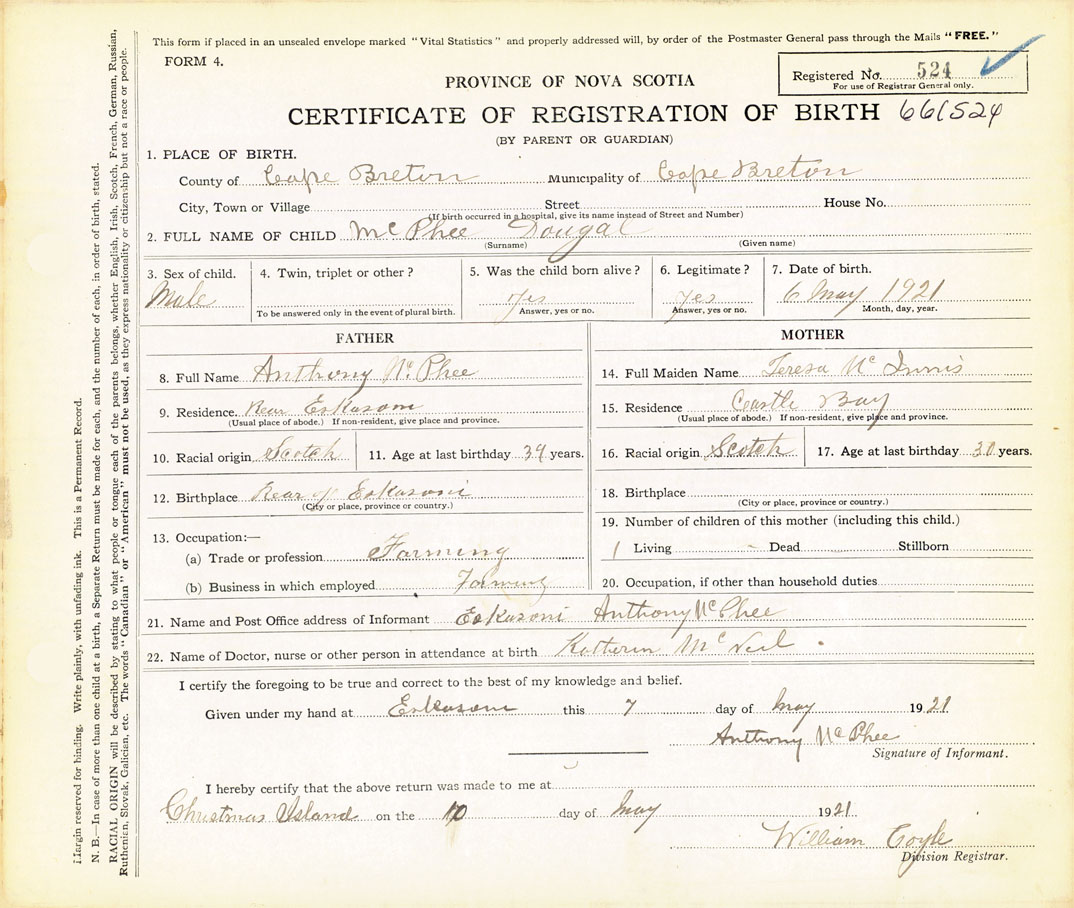 This form if placed in an unsealed envelope marked "Vital Statistics" and properly addressed will, by order of the Postmaster General pass through the Mails "FREE."
FORM 4.
Registered No. 524
For use of Registrar General only.
PROVINCE OF NOVA SCOTIA
CERTIFICATE OF REGISTRATION OF BIRTH 661524
(BY PARENT OR GUARDIAN)
1. PLACE OF BIRTH.
County of Cape Breton Municipality of Cape Breton
City, Town or Village Street House No.
(If birth occurred in a hospital, give its name instead of Street and Number)
2. FULL NAME OF CHILD McPhee Dougal
(Surname) (Given name)
3. Sex of child. 4. Twin, triplet or other? 5. Was the child born alive? 6. Legitimate? 7. Date of birth.
Male Yes Yes 6 May 1921
To be answered only in the event of plural birth. Answer, yes or no. Answer, yes or no. Month, day, year.
FATHER
8. Full Name Anthony McPhee
9. Residence. Rear Eskasoni
(Usual place of abode.) If non-resident, give place and province.
10. Racial origin Scotch 11. Age at last birthday 39 years.
12. Birthplace Rear of Eskasoni
(City or place, province or country.)
13. Occupation:—
(a) Trade or profession Farming
(b) Business in which employed Farming
MOTHER
14. Full Maiden Name Teresa McInnis
15. Residence Castle Bay
(Usual place of abode.) If non-resident, give place and province.
16. Racial origin Scotch 17. Age at last birthday 30 years.
18. Birthplace
(City or place, province or country.)
19. Number of children of this mother (including this child.)
1 Living - Dead Stillborn
20. Occupation, if other than household duties
21. Name and Post Office address of Informant Eskasoni Anthony McPhee
22. Name of Doctor, nurse or other person in attendance at birth Katherin McNeil
I certify the foregoing to be true and correct to the best of my knowledge and belief.
Given under my hand at Eskasoni this 7 day of May 1921
Anthony McPhee
Signature of Informant.
I hereby certify that the above return was made to me at
Christmas Island on the 10 day of May 1921
William Coyle
Division Registrar.
Margin reserved for binding. Write plainly, with unfading ink. This is a Permanent Record.
N. B.—In case of more than one child at a birth, a Separate Return must be made for each, and the number of each, in order of birth, stated.
RACIAL ORIGIN will be described by stating to what people or tongue each of the parents belongs, whether English, Irish, Scotch, French, German, Russian,
Ruthenian, Slovak, Galician, etc. The words "Canadian" or "American" must not be used, as they express nationality or citizenship but not a race or people.